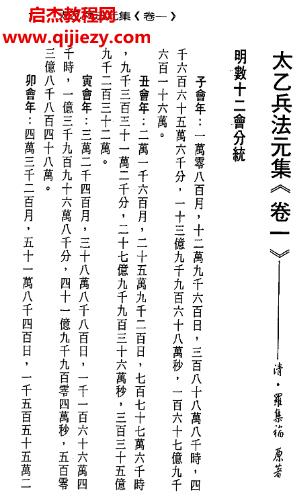 启杰教程网
www.qijiezy.com
元集《卷一》
太乙兵法元集《卷一》——清·羅集福 原著
明數十二會分統
子會年：一萬零八百月，十二萬九千六百日，三百八十八萬八千時，四
千六百六十五萬六千分，一十三億九千九百六十八萬秒，一百六十七億九千
六百一十六萬。
丑會年：二萬一千六百月，二十五萬九千二百日，七百七十七萬六千時
，九千三百三十一萬二千分，二十七億九千九百三十六萬秒，三百三十五億
九千二百三十二萬。
寅會年：三萬二千四百月，三十八萬八千八百日，一千一百六十六萬四
千時，一億三千九百九十六萬八千分，四十一億九千九百零四萬秒，五百零
三億八千八百四十八萬。
卯會年：四萬三千二百月，五十一萬八千四百日，一千五百五十五萬二